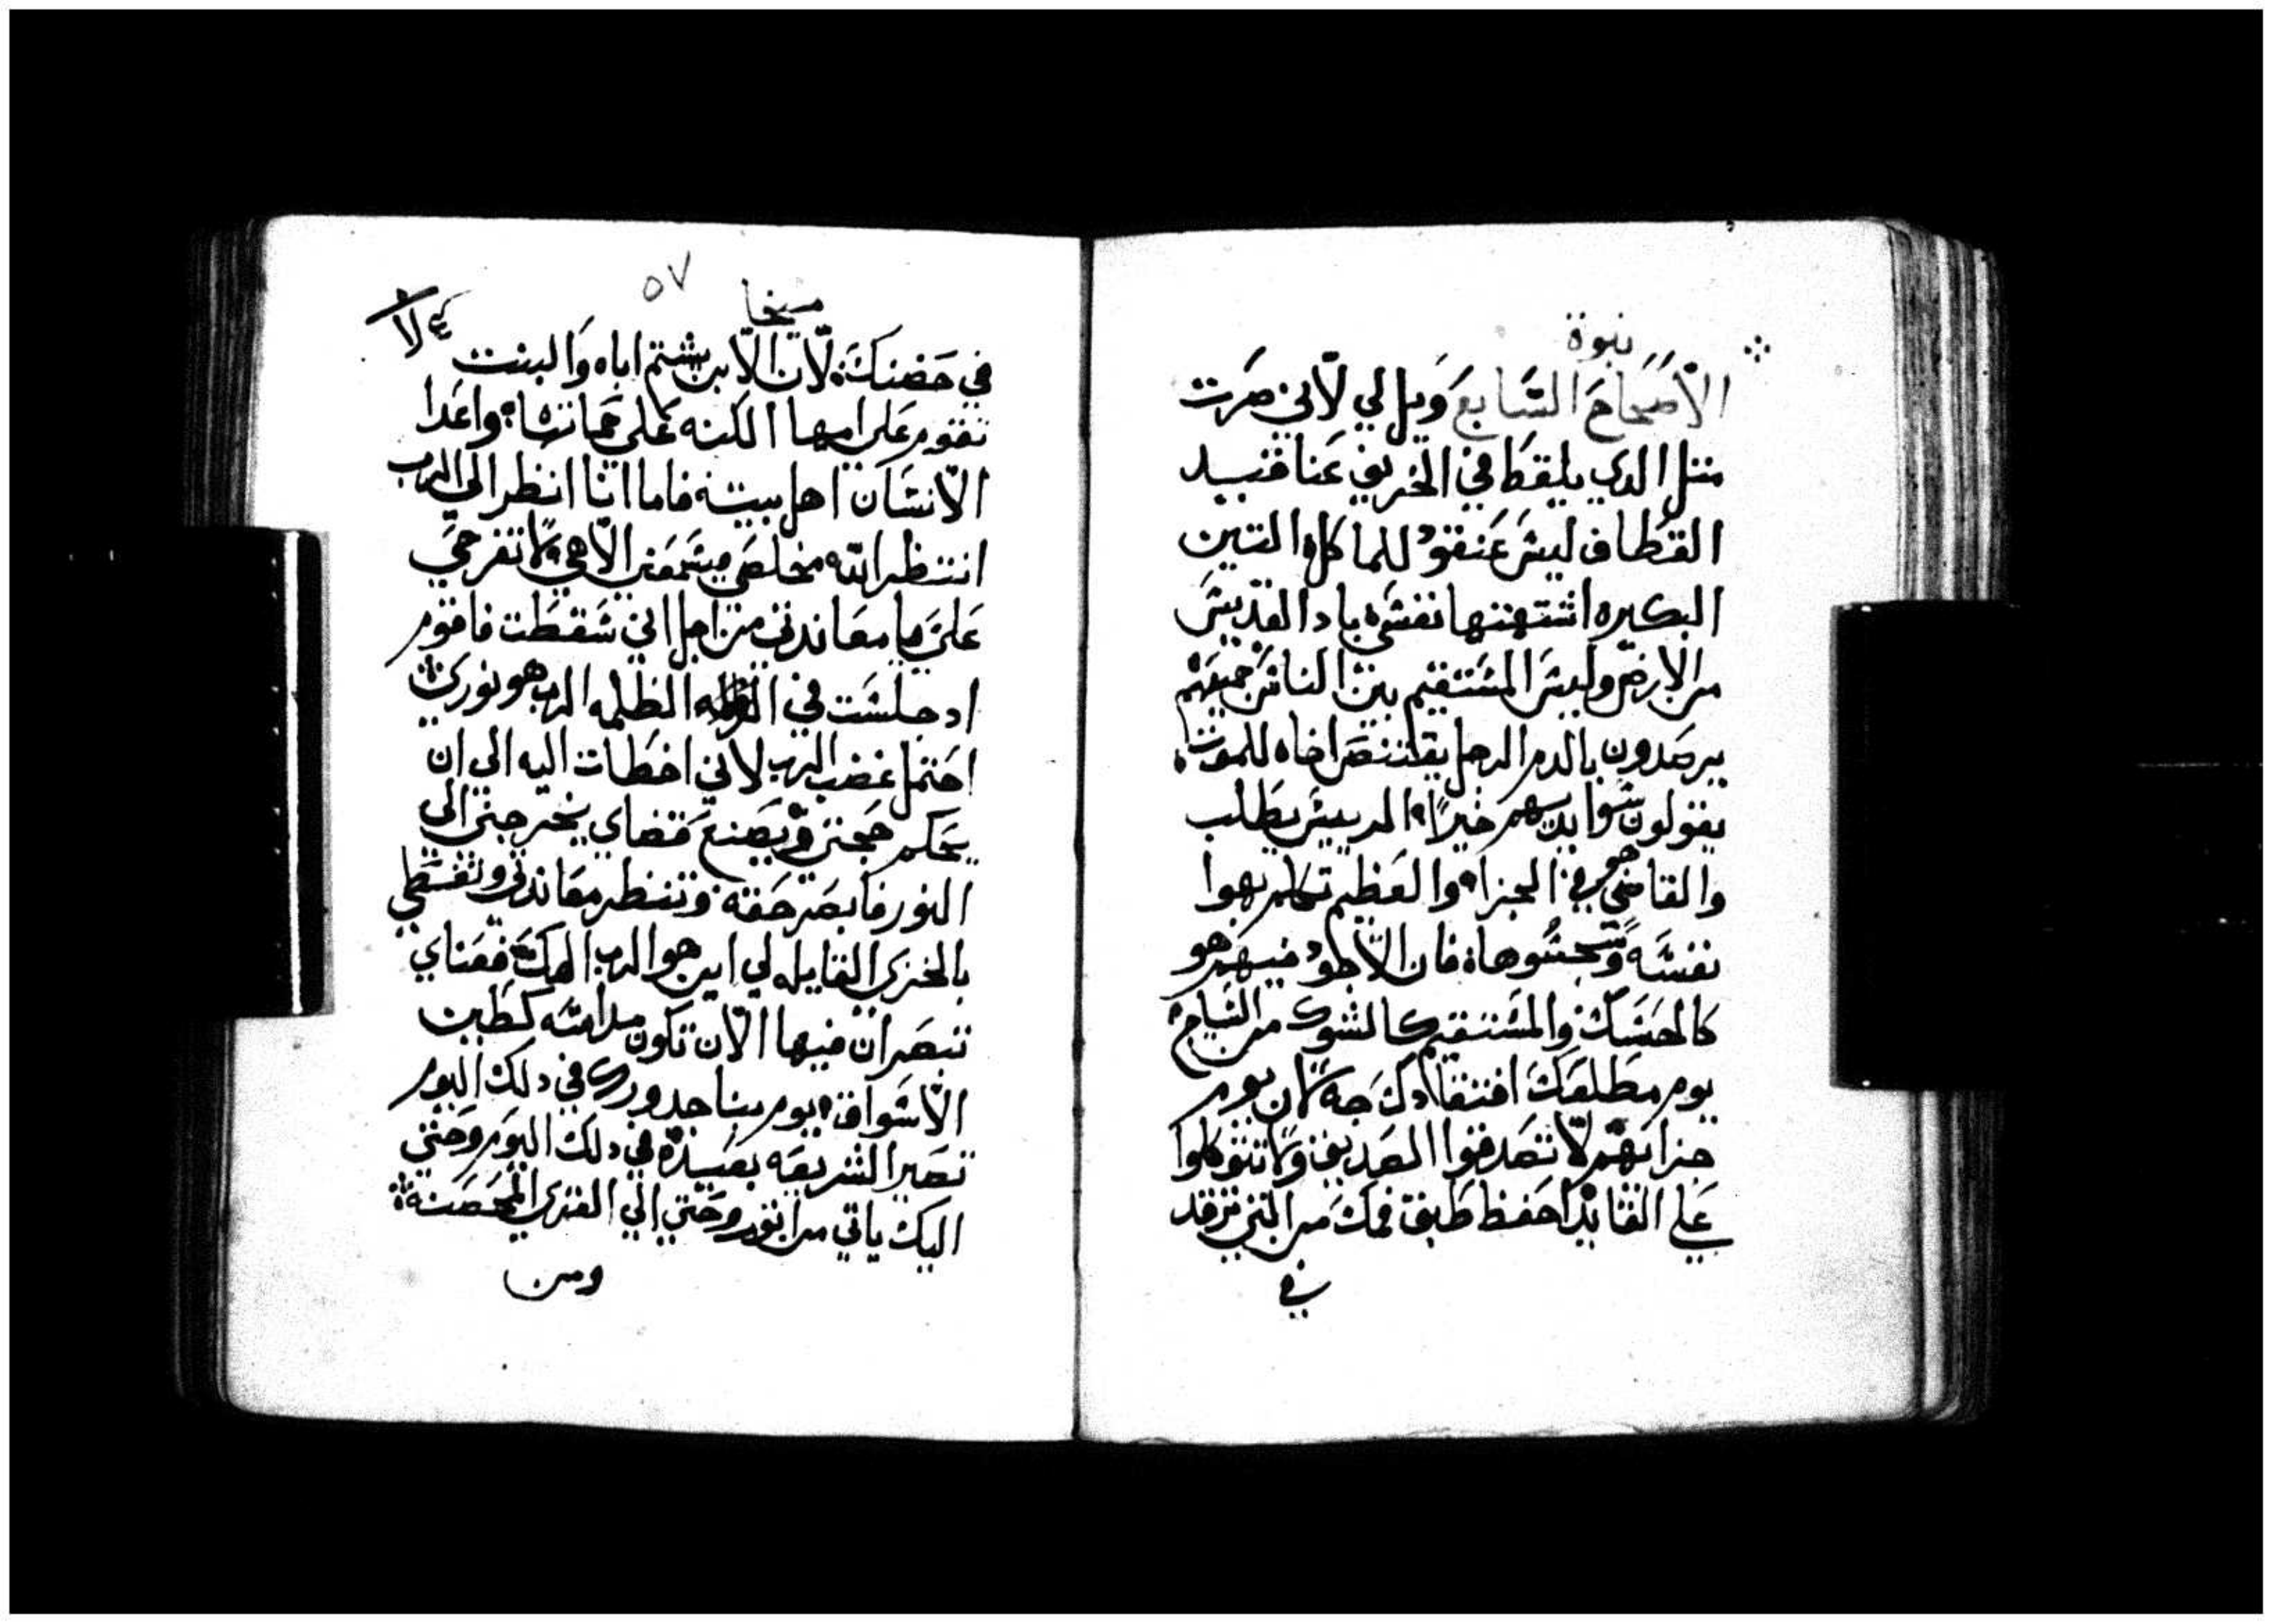 نبوة
الأصحاح السابع ويل لي لأني صرت
متل الدي يلقط في الخريف عناقيد
القطاف ليس عنقود للماكله التين
البكيره اشتهتها نفسي باد القديس
من الارض وليس المستقيم بين الناس جميعهم
يرصدون بالدم الرجل يقتنص اخاه للموت
يقولون سوا يديهم خيراً الرييس يطلب
والقاضي هو في الجزا والعظيم تكلم بهوا
نفسه وسجسوها فان الاجود فيهم هو
كالحسك والمستقيم كالشوك من السياج
يوم مطلعك افتقادك جا لان يوم
جزايهم لا تصدقوا الصديق ولا تتوكلوا
علي القايد احفظ طبق فمك من التي ترقد
في
ميخا
٥٧
في حضنك لان الابن يشتم اباه والبنت
تقوم على امها الكنه على حماتها واعدا
الانسان اهل بيته فاما انا انظر الي الرب
انتظر الله مخلصي يسمعني الاهي لا تفرحي
علي يا معاندتي من اجل اني سقطت فاقوم
اد جلست في الظلمه الرب هو نوري
احتمل غضب الرب لاني اخطات اليه الى ان
يحكم حجتي ويصنع قضاي يخرجني الى
النور فابصر حقه وتنظر معاندتي وتغطي
بالخزي القايله لي اين هو الرب الهك فعيناي
تبصران فيها الان تكون مداسه كطين
الاسواق يوم بنا جدورك في دلك اليوم
تصير الشريعه بعيده في دلك اليوم وحتي
اليك ياتي من اتور وحتي الي القري المحصنه
ومن